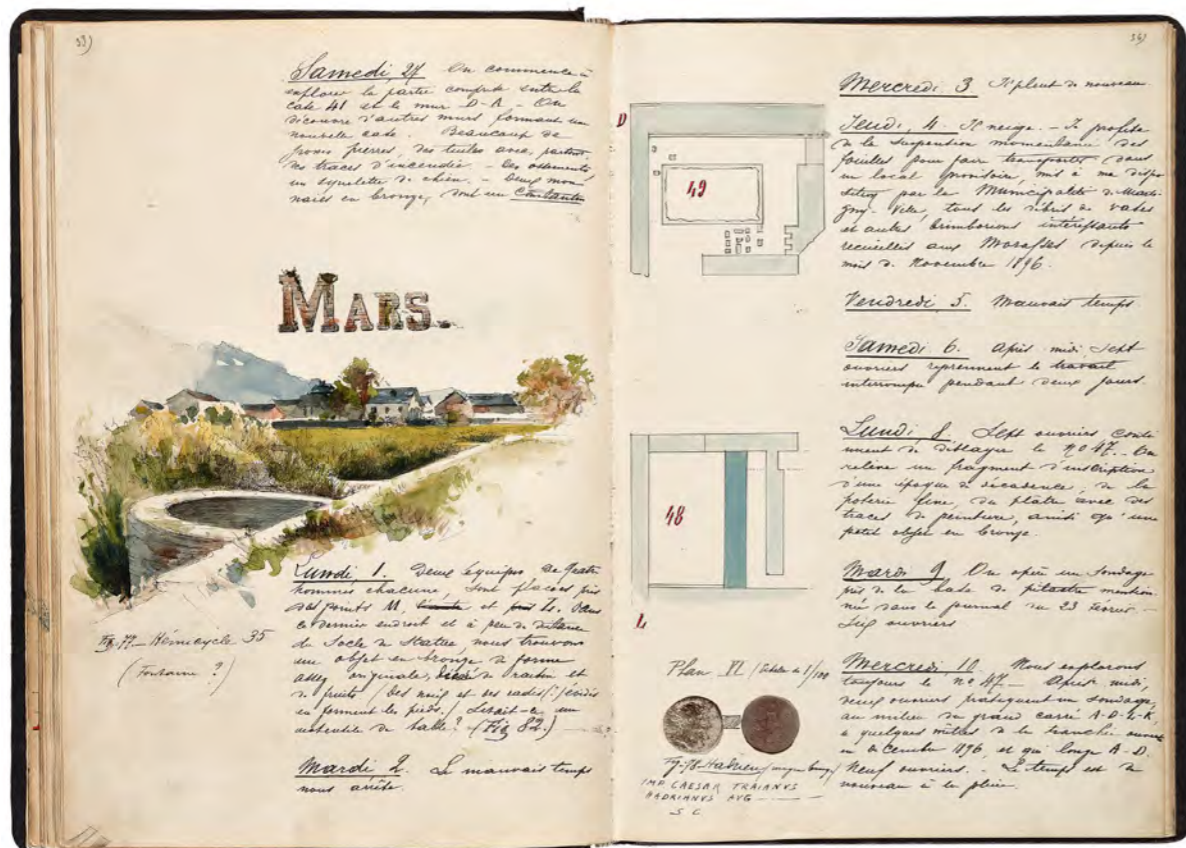 33)
Samedi, 27 On commence à
explorer la partie comprise entre la
cote 41 et le mur D-A - On
découvre d'autres murs formant une
nouvelle case. Beaucoup de
grosses pierres, des tuiles avec, partout,
des traces d'incendie. - Des ossements
un squelette de chien. - Deux mon
naies en bronze, dont un Constantin
MARS.
Lundi, 1. Deux équipes de quatre
hommes chacune, sont placées près
des points M, et L. Dans
ce dernier endroit et à peu de distance
du Socle de Statue, nous trouvons
un objet en bronze de forme
assez originale, de raisin et
de fruits (des noix et des radis (?) évidés
en forment les pieds.) Serait-ce un
ustensile de table? (Fig 82.)
Mardi, 2. Le mauvais temps
nous arrête.
Fig. 77 - Hémicycle 35
(Fontaine ?)
34)
D
49
48
L
Plan VI (Echelle de 1/100
Fig. 78 - Hadrien (moyen bronze)
IMP CAESAR TRAIANVS
HADRIANVS AVG
S C
Mercredi 3 Il pleut de nouveau
Jeudi, 4. Il neige. - Je profite
de la suspension momentanée des
fouilles pour faire transporter dans
un local provisoire, mis à ma dispo
sition par la Municipalité de Marti
gny-Ville, tous les débris de vases
et autres brimborions intéressants
recueillis aux Morasses depuis le
mois de Novembre 1896.
Vendredi, 5. Mauvais temps
Samedi 6. Après midi, sept
ouvriers reprennent le travail
interrompu pendant deux jours.
Lundi, 8. Sept ouvriers conti
nuent de déblayer le No 47. On
relève un fragment d'inscription
d'une époque de décadence, de la
poterie fine, du plâtre avec des
traces de peinture, ainsi qu'un
petit objet en bronze.
Mardi 9 On opère un sondage
près de la base de pilastre mention
née dans le journal du 23 février. -
Six ouvriers
Mercredi, 10. Nous explorons
toujours le no 47 - Après midi,
deux ouvriers pratiquent un sondage,
au milieu du grand carré A-D-L-K
à quelques mètres de la tranchée ouverte
en décembre 1896, et qui longe A-D.
Neuf ouvriers. - Le temps est de
nouveau à la pluie.